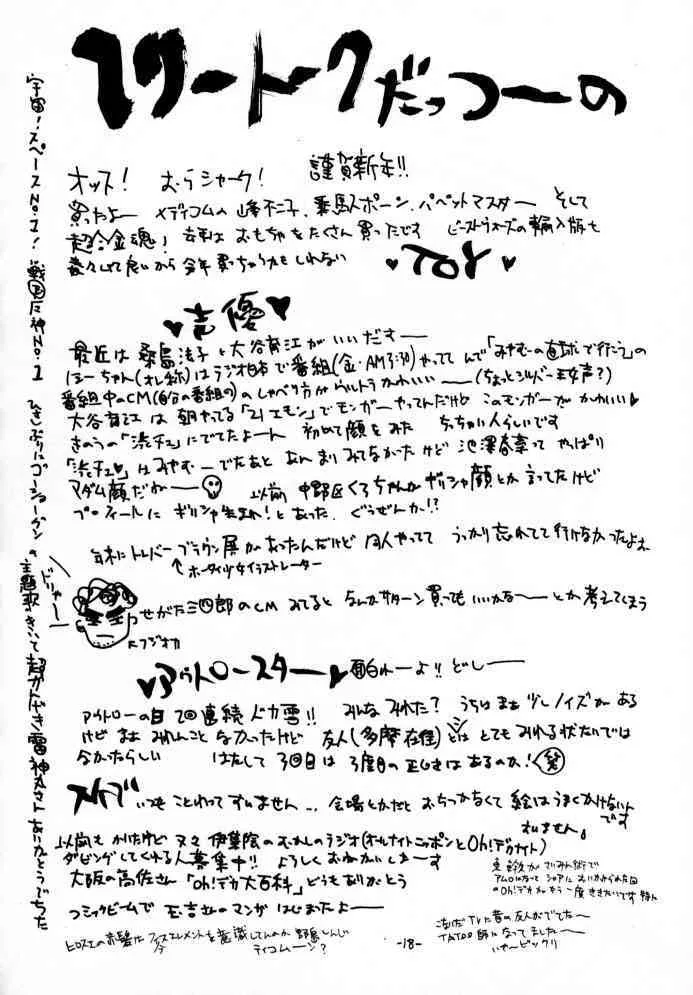 フリートークだっつーの
オッス! むらシャーク! 謹賀新年!!
買ったよー メディコムの峰不二子、乗馬スポーン、パペットマスター そして
超合金魂! 去年は おもちゃをたくさん買ったです ビーストウォーズの輸入版も
着々して良いから今年買っちゃうかもしれない ♥TOY♥
♥声優♥
最近は 桑島法子と大谷育江がいいだすー
ほーちゃん(オレ称)はラジオ日本で番組(金・AM3:30)やってて んで「みやむーの直球で行こう」の
番組中のCM(自分の番組の)のしゃべり方がウルトラかわいいー(ちょっとシルバー王女声?)
大谷育江は 朝やってる「21エモン」でモンガーやってんだけど このモンガーがかわいい♥
きのうの「渋チェ」にでてたよーん 初めて顔をみた ちっちゃい人らしいです
「渋チェ♥」はみやむーでたあと あんまりみてなかったけど 池澤春菜って やっぱり
マダム顔だねー 以前 中野区くろちゃんがギリシャ顔とか言ってたけど
プロフィールに ギリシャ生まれ!とあった。ぐうぜんか!?
年末にトレバーブラウン展があったんだけど 同人やってて うっかり忘れてて行けなかったよお
↑ホータイ少女イラストレーター
ドリャー
せがた三四郎のCM みてると なんかサターン買ってもいいかなー とか考えてしまう
フジオカ
♥アウトロースター♥ 面白れーよ!! どしー
アウトローの日 2回連続 ドカ雪!! みんなみれた? うちはまぁ少しノイズがある
けど まぁ みれんことなかったけど 友人(多摩在住)とかはとてもみれる状たいでは
なかったらしい はたして 3回目は 3度目の正じきはあるのか! (笑)
スケブ いつも ことわってすいません… 会場とかだと おちつかなくて絵はうまくかけないんです
すいません。
以前もかいたけど 又々 伊集院のむかしのラジオ(オールナイトニッポンとOh!デカナイト)
ダビングしてくれる人募集中!! よろしく おねがいしまーす
大阪の高佐さん「Oh!デカ大百科」どうもありがとう
コミックビームで 玉吉さんのマンガ はじまったよー
ヒロスエの赤髪はフィフスエレメントを意識してんのか 野島しんじ
ティコムーン?
-18-
アムロになって シャアに おいかけられた日
のOh!デカがもう一度ききたいです 特に
こないだTVに昔の友人がでてたー
TATOO師になってましたー
いやービックリ
宇宙!スペースNo.1! 戦国魔神No.1 ひさしぶりにゴーショーグンの主題歌きいて超かんげき雷神丸さんありがとうでちた